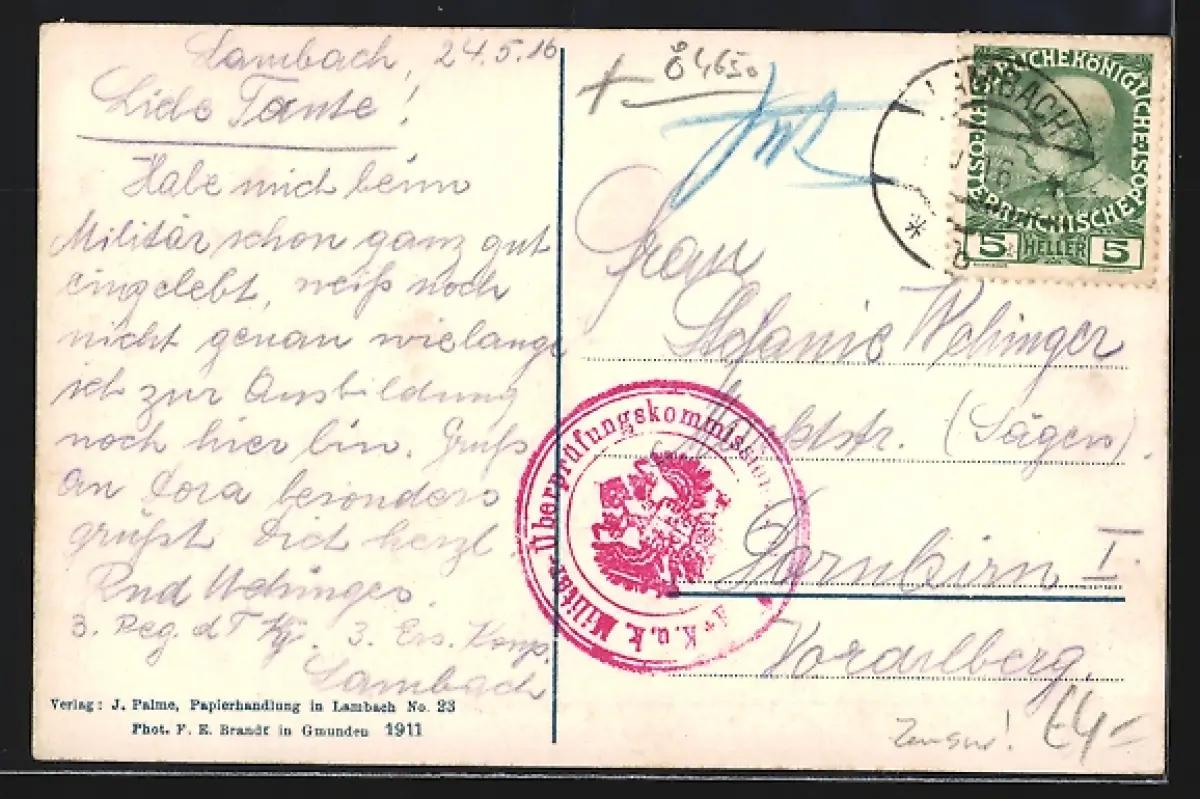 Lambach, 24.5.16
Liebe Tante!
Habe mich beim
Militär schon ganz gut
eingelebt, weiß noch
nicht genau wielange
ich zur Ausbildung
noch hier bin. Gruß
an Dora besonders
grüßt Dich herzl
Rud Wehinger.
3. Reg. d T Kj. 3. Ers. Komp.
Lambach
Verlag: J. Palme, Papierhandlung in Lambach No. 23
Phot. F. E. Brandt in Gmunden 1911
ö 4650
LAMBACH
KAISERLICHE KÖNIGLICHE ÖSTERREICHISCHE POST
5 HELLER 5
Frau
Stefanie Wehinger
Marktstr. (Sägen).
Dornbirn I.
Vorarlberg.
K.u.k. Militär Überprüfungskommission
Zensur! £4,-